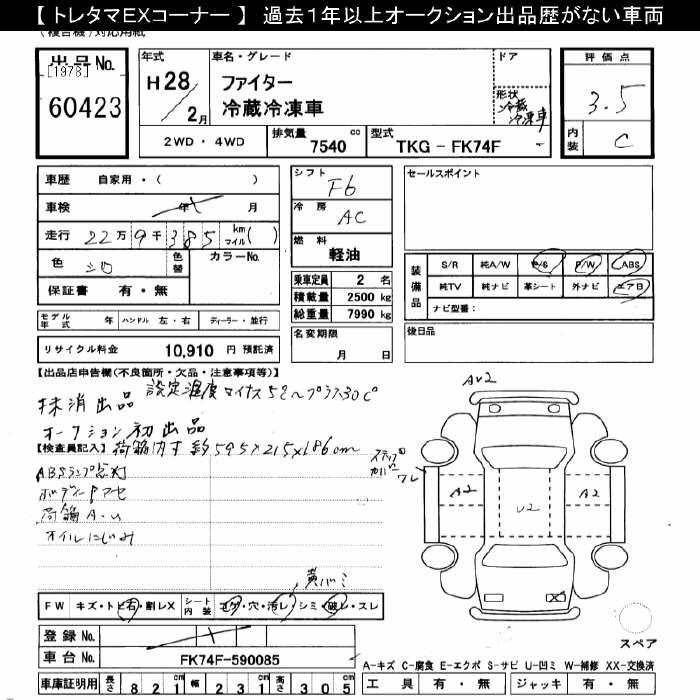 【 トレタマEXコーナー 】 過去1年以上オークション出品歴がない車両
(複合機)対応用紙
出品No.
[1978]
60423
年式
H28/2月
車名・グレード
ファイター
冷蔵冷凍車
ドア
形状
冷蔵冷凍車
評価点
3.5
内装
C
2WD・4WD
排気量 7540 cc
型式 TKG - FK74F -
車歴 自家用・( )
車検 年 月
走行 22万9千385 km マイル( )
色 シロ
色替
カラーNo.
保証書 有・無
モデル年式 年
ハンドル 左・右
ディーラー・並行
リサイクル料金 10,910 円 預託済
シフト F6
冷房 AC
燃料 軽油
乗車定員 2 名
積載量 2500 kg
総重量 7990 kg
名変期限 月 日
セールスポイント
装備品
S/R 純A/W P/S P/W ABS
純TV 純ナビ 革シート 外ナビ エアB
ナビ型番:
後日品
【出品店申告欄(不良箇所・欠品・注意事項等)】
設定温度マイナス5℃〜プラス30℃
抹消出品
オークション初出品
【検査員記入】 荷箱内寸約595×215×186cm
ABSランプ点灯
ボディー下サビ
荷箱A・U
オイルにじみ
ステップカバーワレ
AU2
A2
U2
A2
FW キズ・トビ石・割レX
シート内装 コゲ・穴・汚レ・シミ・破レ・スレ
登録No.
車台No. FK74F-590085
車庫証明用 長さ 821cm 幅 231cm 高さ 305cm
スペア
A-キズ C-腐食 E-エクボ S-サビ U-凹ミ W-補修 XX-交換済
工具 有・無 ジャッキ 有・無